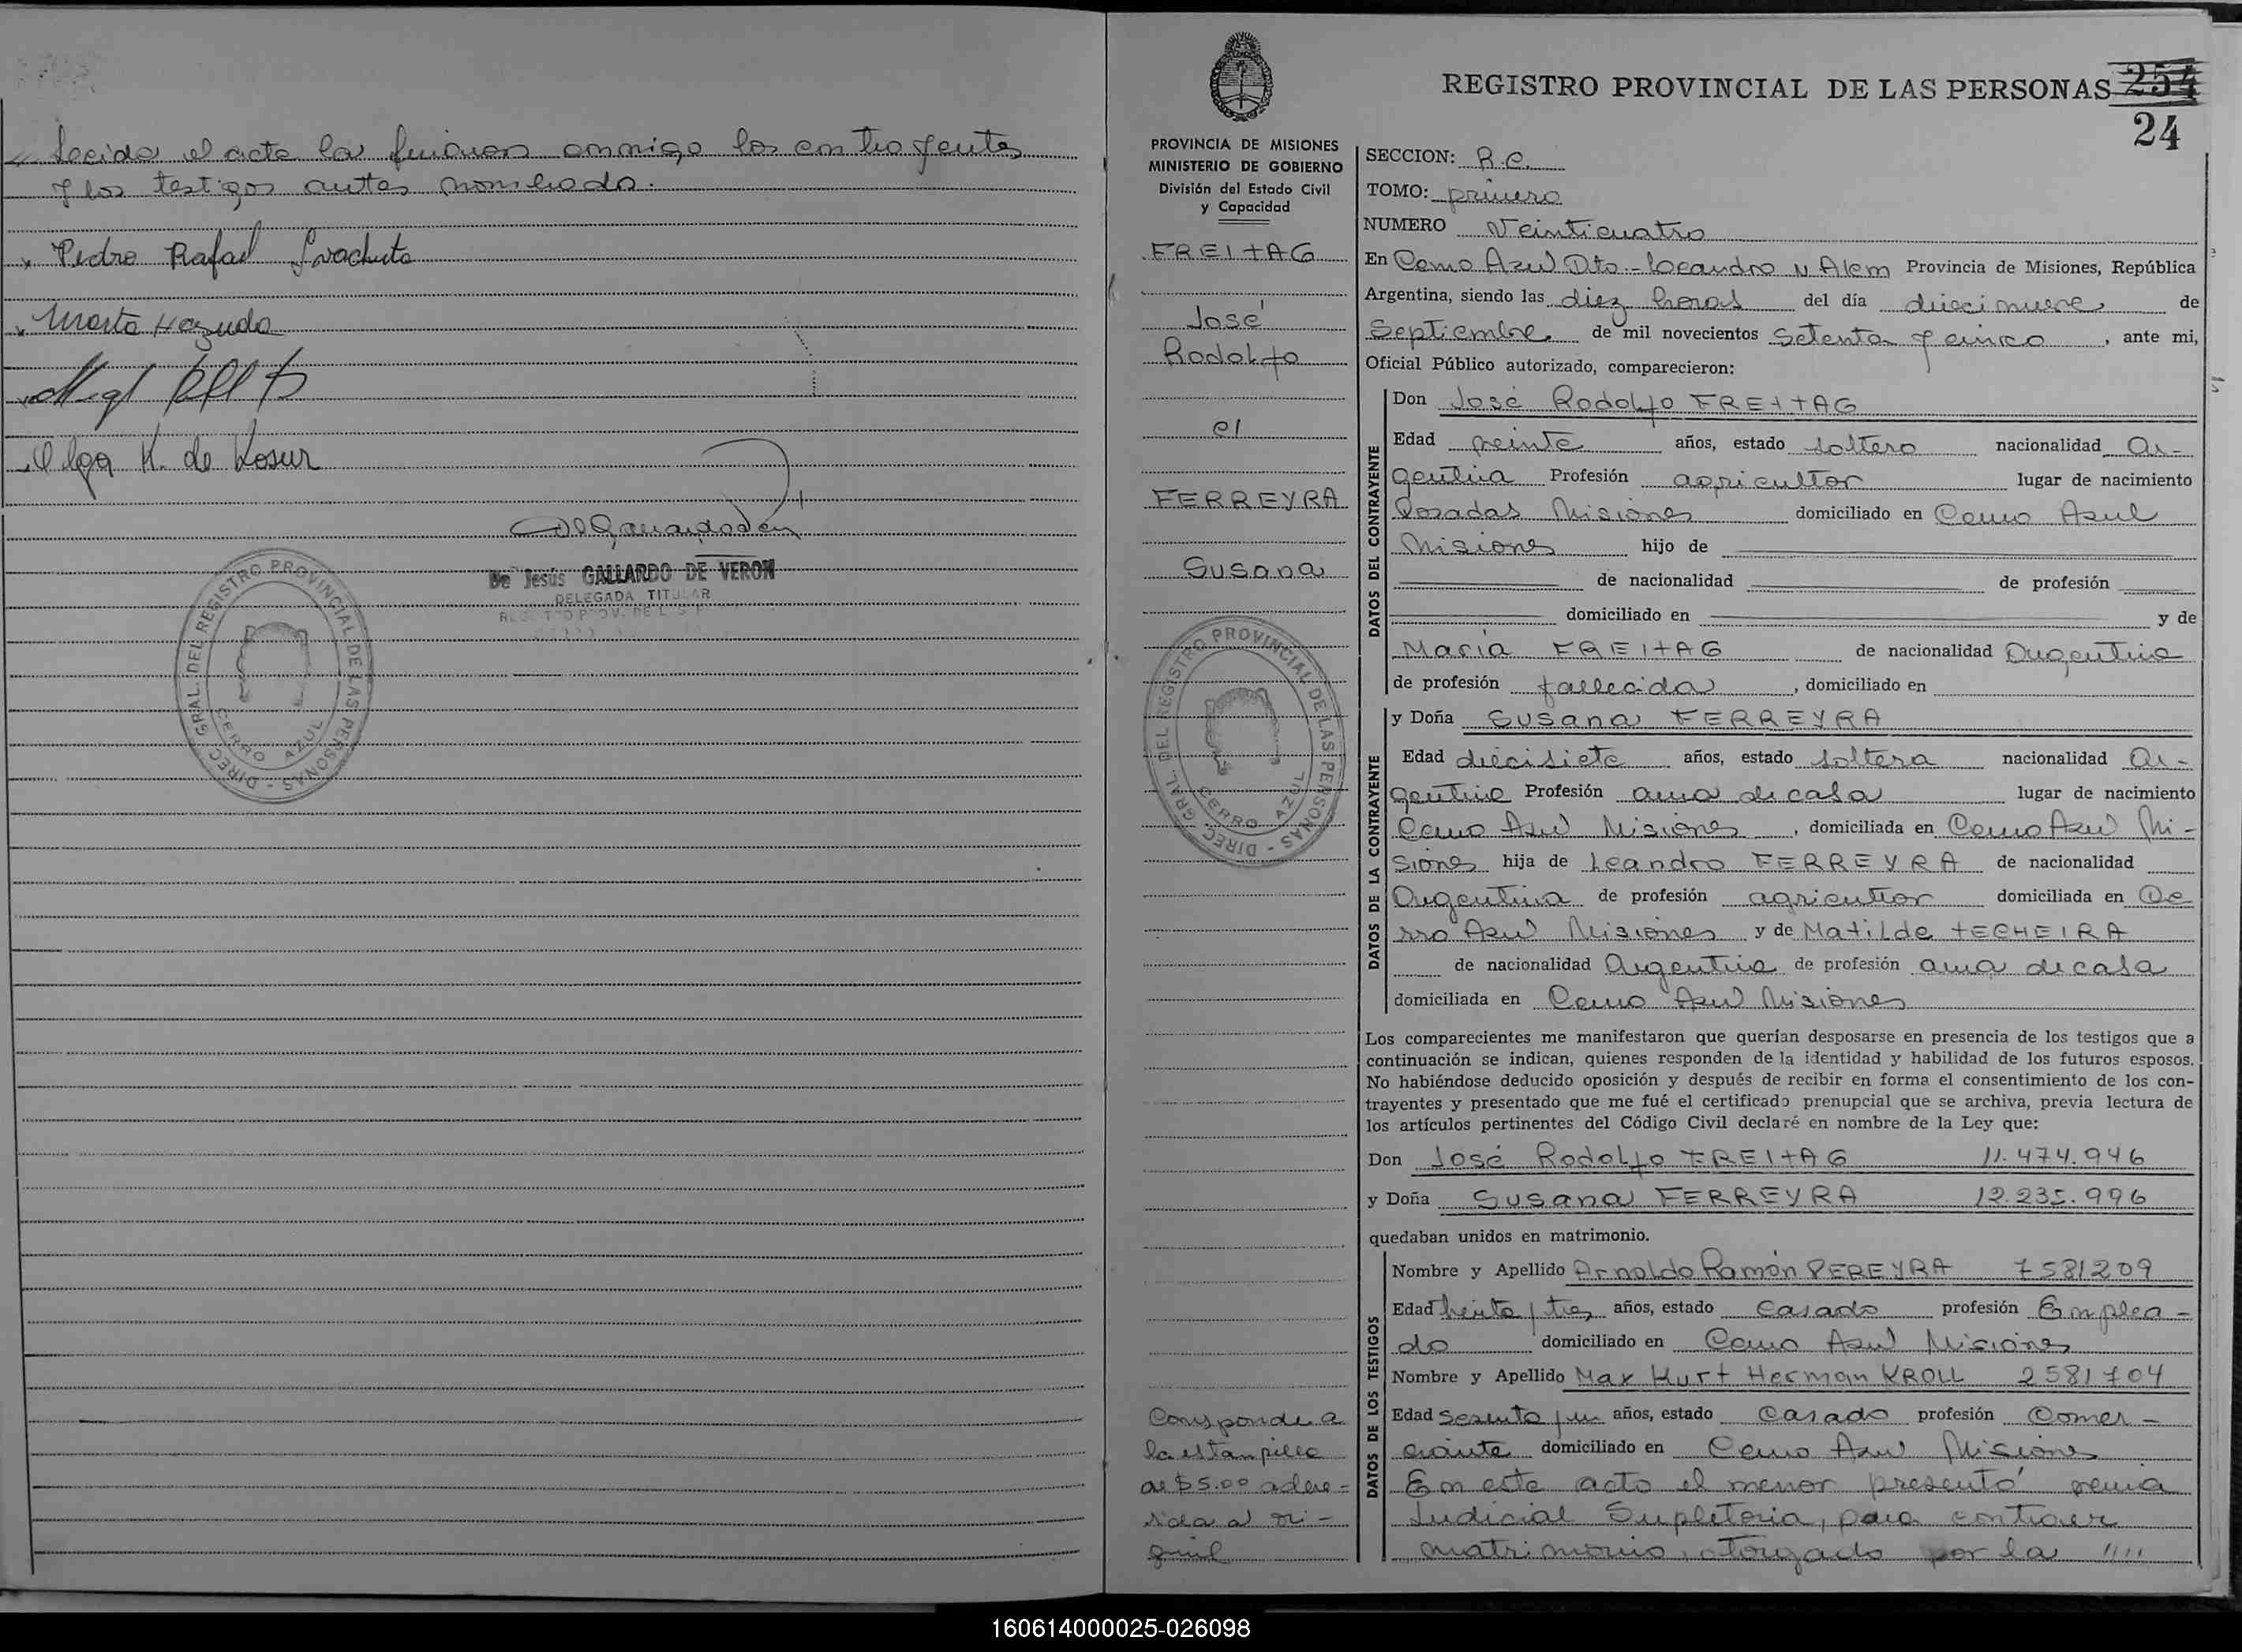 Leida el acta la firman conmigo los contrayentes
y los testigos antes nombrado.
Pedro Rafael
Marta
Olga K. de Kosur
De Jesús GALLARDO DE VERON
DELEGADA TITULAR
DIREC. GRAL. DEL REGISTRO PROVINCIAL DE LAS PERSONAS
CERRO AZUL
PROVINCIA DE MISIONES
MINISTERIO DE GOBIERNO
División del Estado Civil
y Capacidad
FREITAG
José
Rodolfo
el
FERREYRA
Susana
DIREC. GRAL. DEL REGISTRO PROVINCIAL DE LAS PERSONAS
CERRO AZUL
Corresponde a
la estampilla
de $5.00 adhe-
rida al ori-
ginal
REGISTRO PROVINCIAL DE LAS PERSONAS 254
24
SECCION: R.C.
TOMO: primero
NUMERO Veinticuatro
En Cerro Azul Dto. Leandro N Alem Provincia de Misiones, República
Argentina, siendo las diez horas del día diecinueve de
Septiembre de mil novecientos Setenta y cinco, ante mi,
Oficial Público autorizado, comparecieron:
DATOS DEL CONTRAYENTE
Don José Rodolfo FREITAG
Edad veinte años, estado soltero nacionalidad Ar-
gentina Profesión agricultor lugar de nacimiento
Posadas Misiones domiciliado en Cerro Azul
Misiones hijo de
de nacionalidad de profesión
domiciliado en y de
María FREITAG de nacionalidad Argentina
de profesión fallecida, domiciliado en
DATOS DE LA CONTRAYENTE
y Doña Susana FERREYRA
Edad diecisiete años, estado soltera nacionalidad Ar-
gentina Profesión ama de casa lugar de nacimiento
Cerro Azul Misiones, domiciliada en Cerro Azul Mi-
siones hija de Leandro FERREYRA de nacionalidad
Argentina de profesión agricultor domiciliada en Ce
rro Azul Misiones y de Matilde TECHEIRA
de nacionalidad Argentina de profesión ama de casa
domiciliada en Cerro Azul Misiones
Los comparecientes me manifestaron que querían desposarse en presencia de los testigos que a
continuación se indican, quienes responden de la identidad y habilidad de los futuros esposos.
No habiéndose deducido oposición y después de recibir en forma el consentimiento de los con-
trayentes y presentado que me fué el certificado prenupcial que se archiva, previa lectura de
los artículos pertinentes del Código Civil declaré en nombre de la Ley que:
Don José Rodolfo FREITAG 11.474.946
y Doña Susana FERREYRA 12.235.996
quedaban unidos en matrimonio.
DATOS DE LOS TESTIGOS
Nombre y Apellido Arnoldo Ramón PEREYRA 7581209
Edad treinta y tres años, estado Casado profesión Emplea-
do domiciliado en Cerro Azul Misiones
Nombre y Apellido Max Kurt Herman KROLL 2581704
Edad Sesenta y un años, estado Casado profesión Comer-
ciante domiciliado en Cerro Azul Misiones
En este acto el menor presentó venia
Judicial Supletoria, para contraer
matrimonio, otorgado por la ////
160614000025-026098